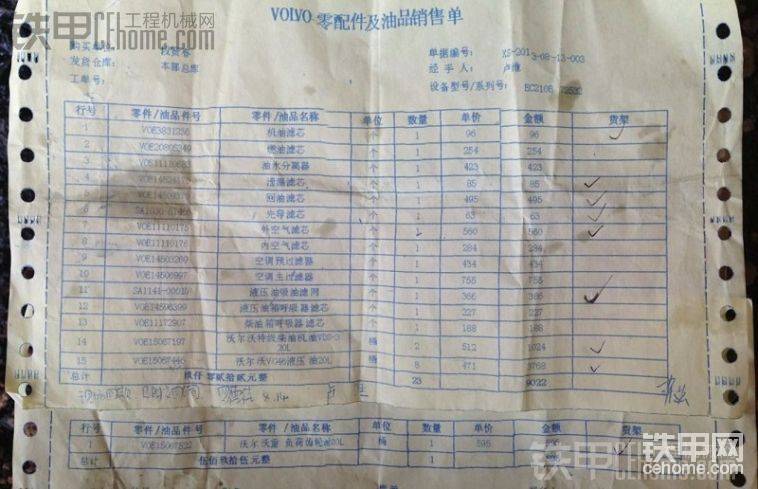 铁甲 工程机械网 cehome.com
VOLVO 零配件及油品销售单
购买单位:
单据编号: XS-2013-08-13-003
发货仓库: 本部总库
经手人: 卢维
工单号:
设备型号/系列号: EC210B
行号 零件/油品件号 零件/油品名称 单位 数量 单价 金额 货架
1 VOE3831236 机油滤芯 个 1 96 96
2 燃油滤芯 个 1 254 254
3 油水分离器 个 1 423 423
4 个 1 85 85
5 回油滤芯 个 1 495 495
6 先导滤芯 个 1 63 63
7 VOE11110175 外空气滤芯 个 1 560 560
8 VOE11110176 内空气滤芯 个 1 284 284
9 VOE14503269 空调预过滤器 个 1 434 434
10 VOE14506997 空调主过滤器 个 1 755 755
11 SA1141-00010 液压油吸油滤网 个 1 366 366
12 VOE14596399 液压油箱呼吸器滤芯 个 1 227 227
13 VOE11172907 柴油箱呼吸器滤芯 个 1 188 188
14 VOE15067197 沃尔沃特级柴油机油VDS-3 20L 桶 2 512 1024
15 VOE15067446 沃尔沃VO46液压油20L 桶 8 471 3768
总计 玖仟零贰拾贰元整 23 9022
行号 零件/油品件号 零件/油品名称 单位 数量 单价 金额 货架
1 桶 1 595
总计 伍佰玖拾伍元整 1
铁甲网
cehome.com